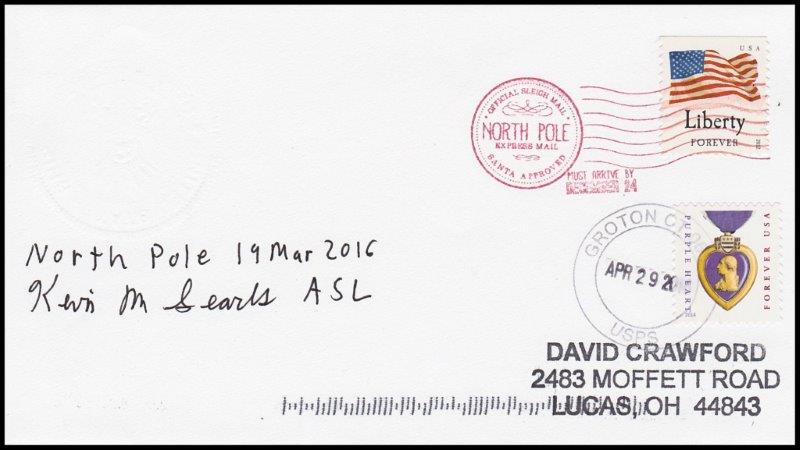 USA
Liberty
FOREVER
2012
OFFICIAL SLEIGH MAIL
NORTH POLE
EXPRESS MAIL
SANTA APPROVED
MUST ARRIVE BY
DECEMBER 24
PURPLE HEART
FOREVER USA
2014
GROTON
APR 29
USPS
North Pole 19 Mar 2016
Kevin M Searls ASL
DAVID CRAWFORD
2483 MOFFETT ROAD
LUCAS, OH 44843